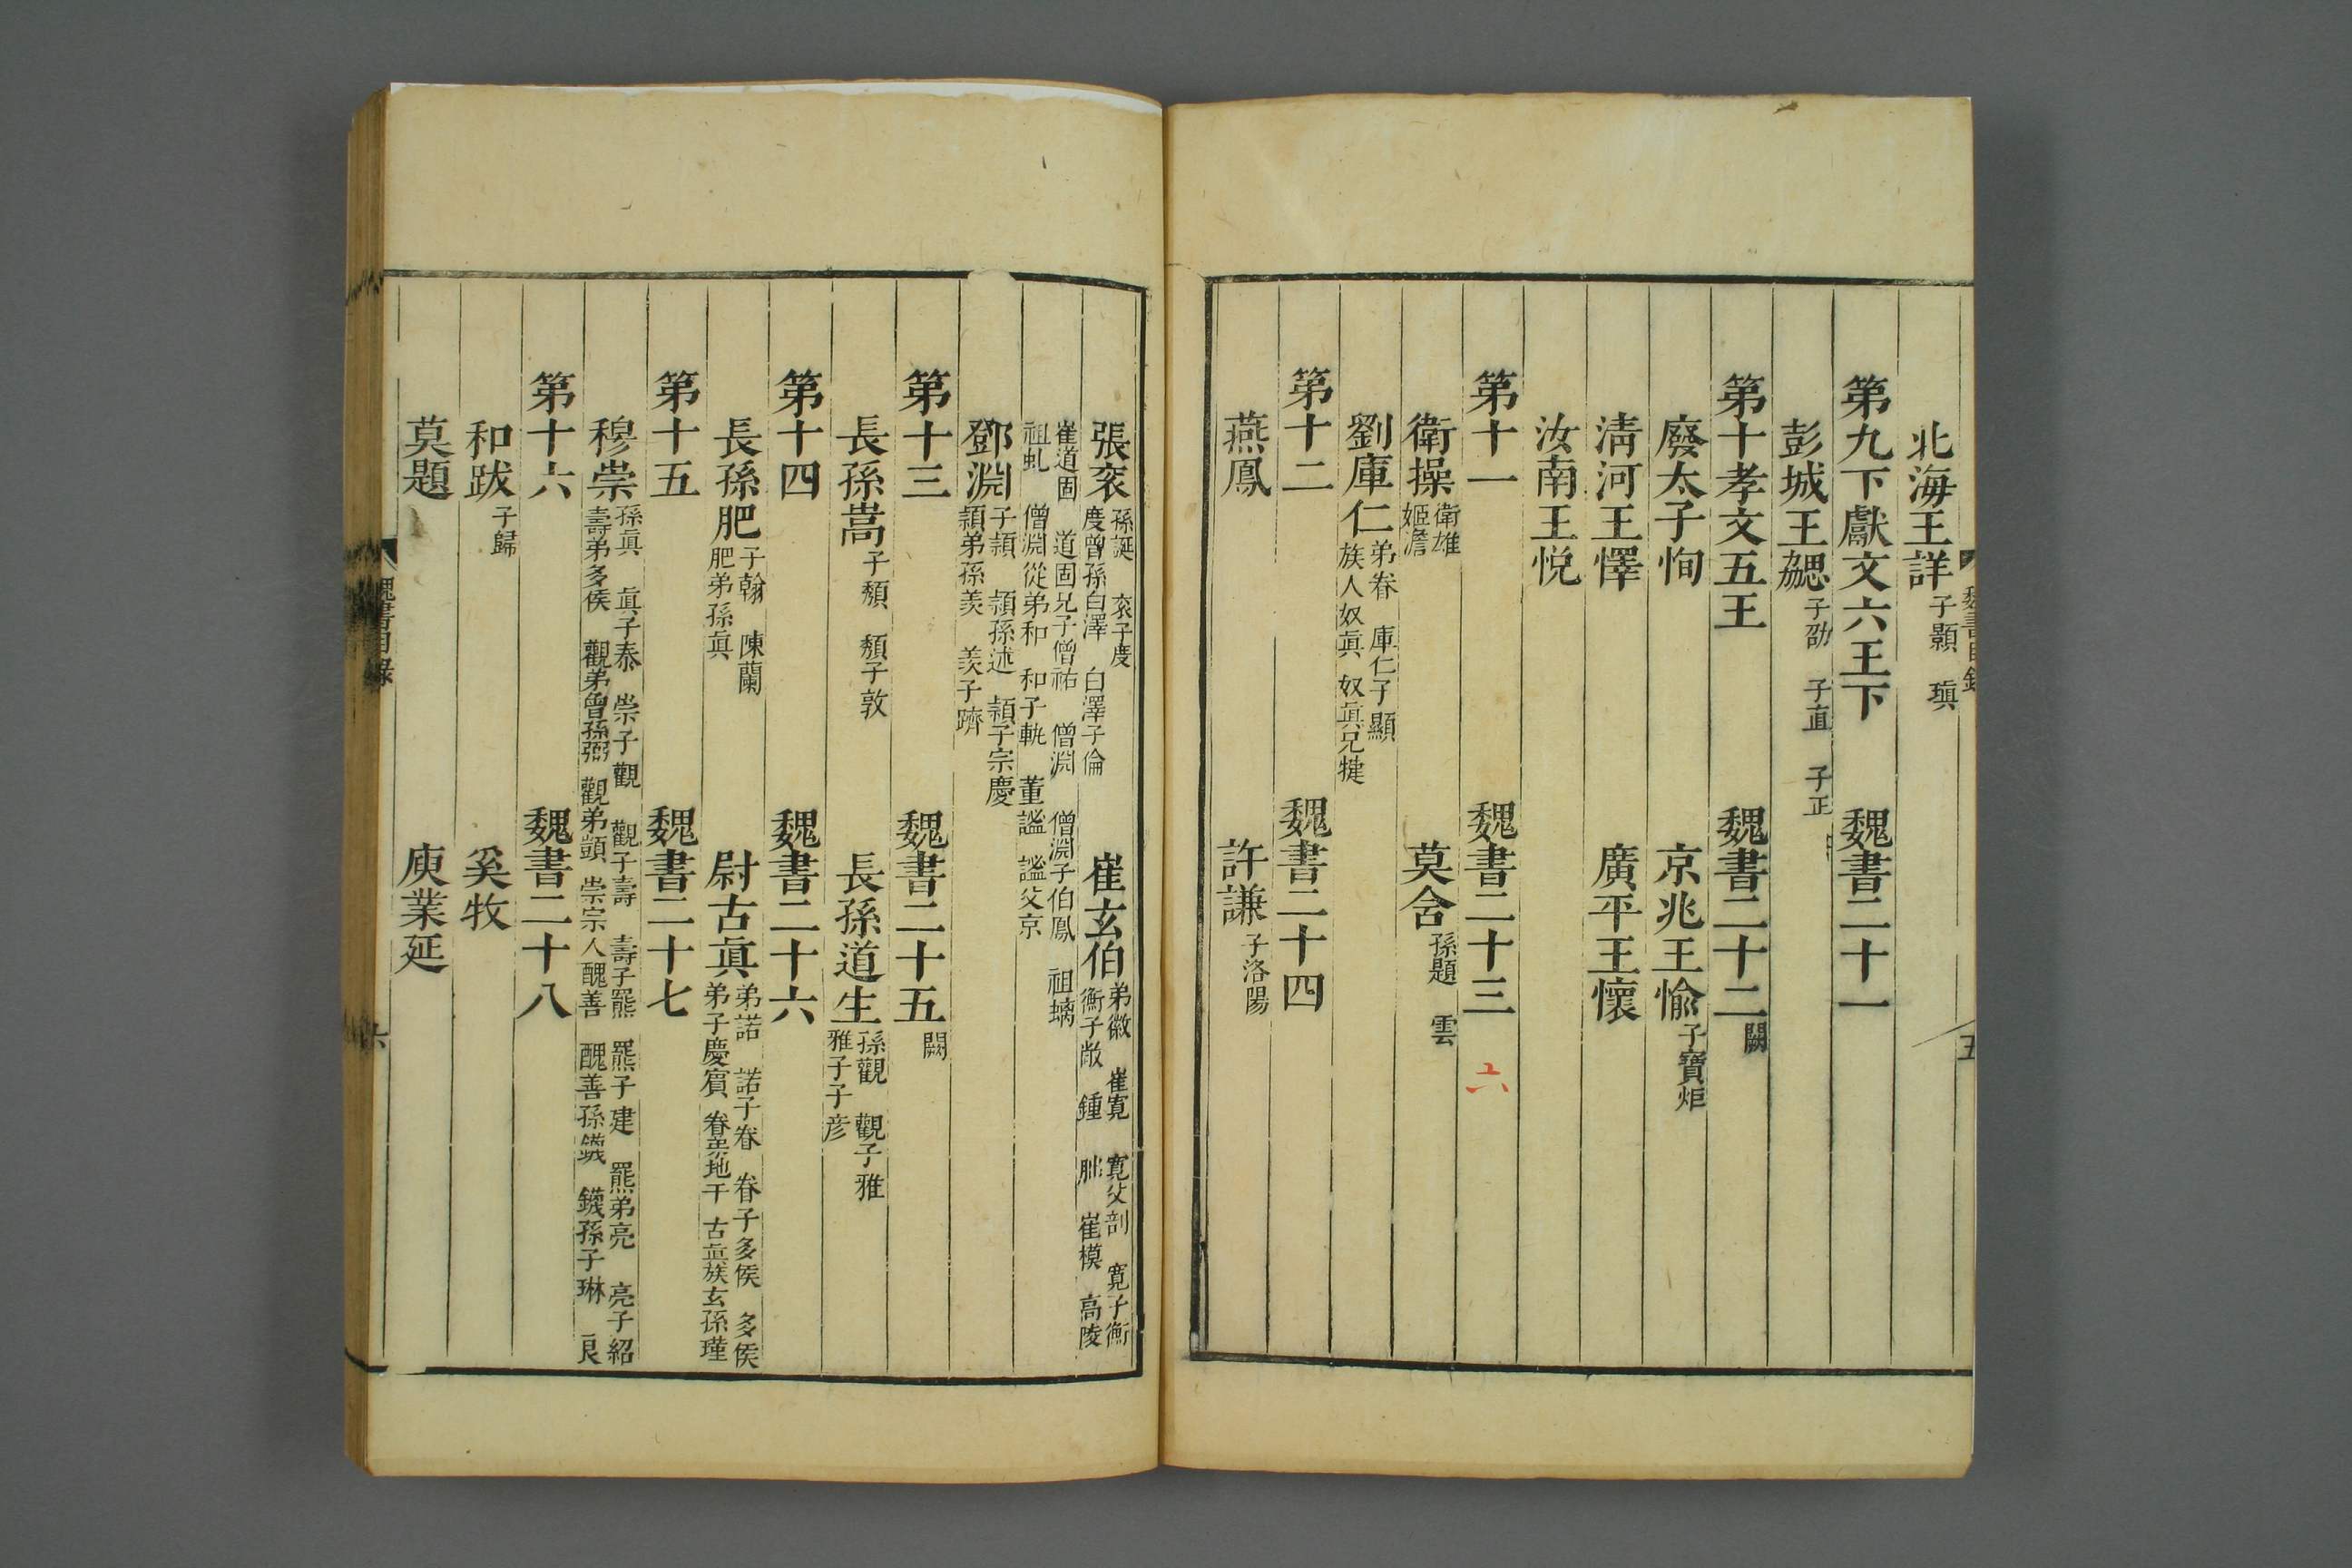 北海王詳 子顥 瑱
第九下獻文六王下 魏書二十一
彭城王勰 子劭 子直 子正
第十孝文五王 魏書二十二 闕
廢太子恂 京兆王愉 子寶炬
清河王懌 廣平王懷
汝南王悦
第十一 魏書二十三
六
衛操 衛雄 姬澹 莫含 孫題 雲
劉庫仁 弟眷 庫仁子顯 族人奴眞 奴眞兄犍
第十二 魏書二十四
燕鳳 許謙 子洛陽
五
張衮 孫誕 衮子度 度曾孫白澤 白澤子倫 崔玄伯 弟徽 崔寛 寛父剖 寛子衡 衡子敞 鍾 朏 崔模 高陵
崔道固 道固兄子僧祐 僧淵 僧淵子伯鳳 祖螭
祖虬 僧淵從弟和 和子軌 董謐 謐父京
鄧淵 子頴 頴孫述 頴子宗慶 頴弟孫羨 羨子躋
第十三 魏書二十五 闕
長孫嵩 子頽 頽子敦 長孫道生 孫觀 觀子雅 雅子子彦
第十四 魏書二十六
長孫肥 子翰 陳蘭 肥弟孫眞 尉古眞 弟諾 諾子眷 眷子多侯 多侯弟子慶賓 眷弟地干 古眞族玄孫瑾
第十五 魏書二十七
穆崇 孫眞 眞子泰 崇子觀 觀子壽 壽子羆 羆子建 羆弟亮 亮子紹
壽弟多侯 觀弟曾孫弼 觀弟顗 崇宗人醜善 醜善孫鐵 鐵孫子琳 良
第十六 魏書二十八
和跋 子歸 奚牧
莫題 庾業延
魏書目錄
六